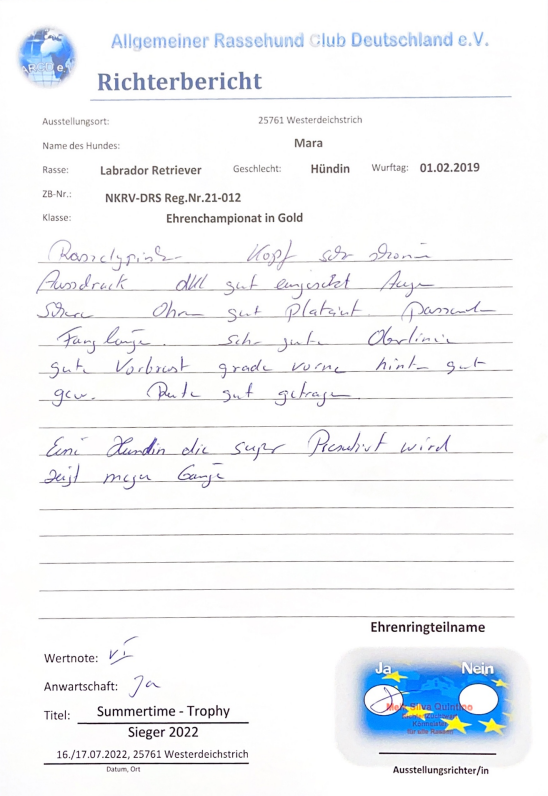 ARCD e.V.
Allgemeiner Rassehund Club Deutschland e.V.
Richterbericht
Ausstellungsort: 25761 Westerdeichstrich
Name des Hundes: Mara
Rasse: Labrador Retriever Geschlecht: Hündin Wurftag: 01.02.2019
ZB-Nr.: NKRV-DRS Reg.Nr.21-012
Klasse: Ehrenchampionat in Gold
Kopf sehr
Ausdruck dkl gut eingesetzt Auge
Schere Ohren gut Platziert. Passende
Fanglänge. Sehr gute Oberlinie
gute Vorbrust grade vorne hinten gut
gew. Rute gut getragen.
Eine Hündin die super Präsentiert wird
zeigt mega Gänge
Ehrenringteilname
Wertnote: V1
Anwartschaft: Ja
Titel: Summertime - Trophy
Sieger 2022
16./17.07.2022, 25761 Westerdeichstrich
Datum, Ort
Ja Nein
Silva Quintino
Ausstellungsrichter/in